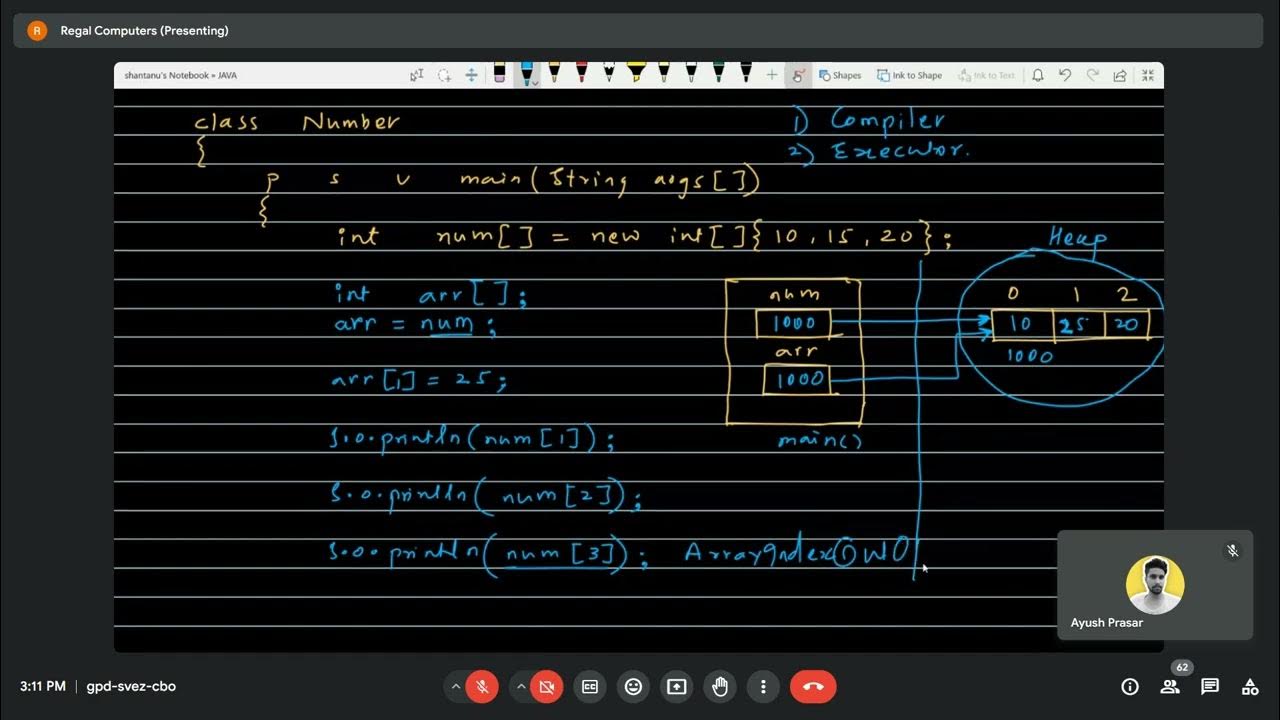 R Regal Computers (Presenting)
shantanu's Notebook » JAVA
Shapes Ink to Shape Ink to Text
class Number
{
1) Compiler
2) Executor.
p s v main(String args[])
{
int num[] = new int[]{10, 15, 20};
Heap
int arr[];
arr = num;
arr[1] = 25;
num
1000
arr
1000
main()
0 1 2
10 25 20
1000
S.o.println(num[1]);
S.o.println(num[2]);
S.o.println(num[3]); ArrayIndexOutO
Ayush Prasar
62
3:11 PM | gpd-svez-cbo